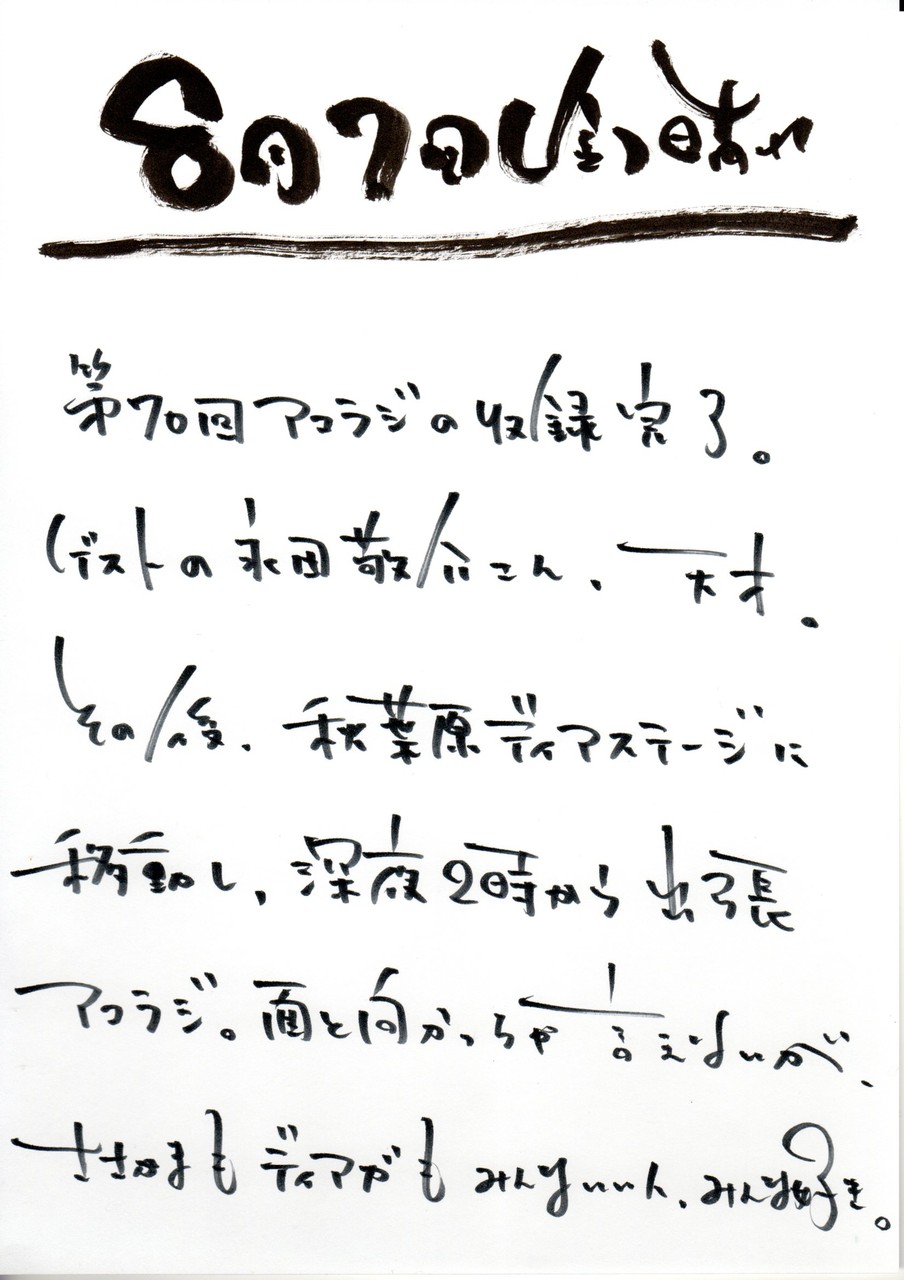 8月7日(金)日晴れ
第70回アコラジの収録完了。
ゲストの永田敬介さん、天才。
その後、秋葉原ディアステージに
移動し、深夜2時から出張
アコラジ。面と向かっちゃ言えないが、
ささかまもディアガもみんないい人、みんな好き。